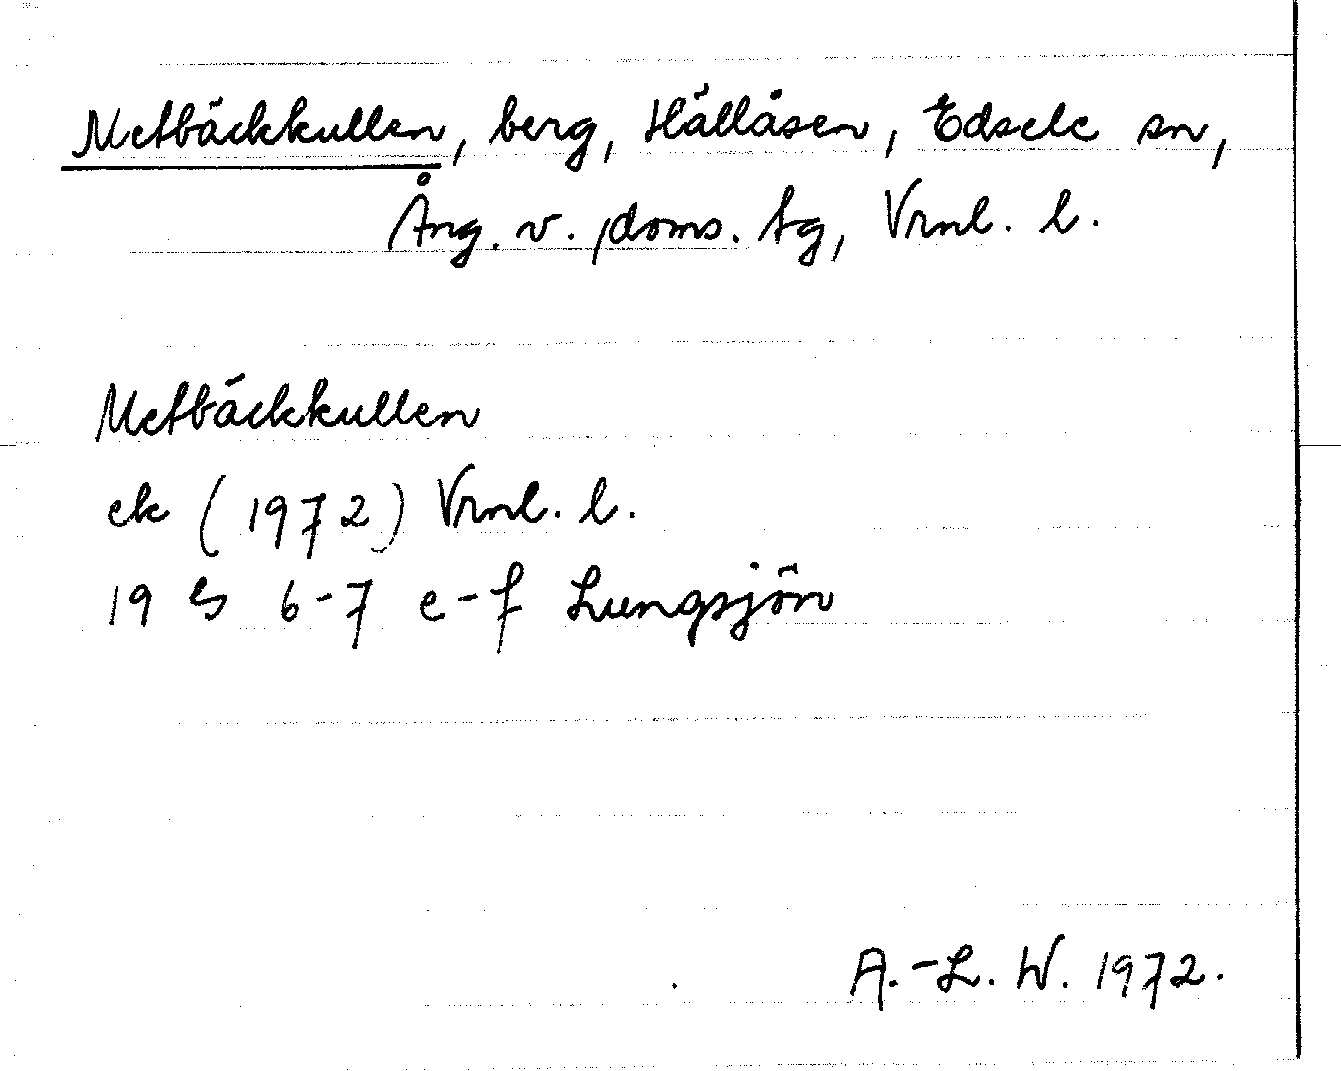 Metbäckkullen, berg, Hällåsen, Edsele sn,
Ång. v. doms. tg, Vrnl. l.
Metbäckkullen
ek (1972) Vrnl. l.
19 G 6-7 e-f Lungsjön
A.-L. W. 1972.